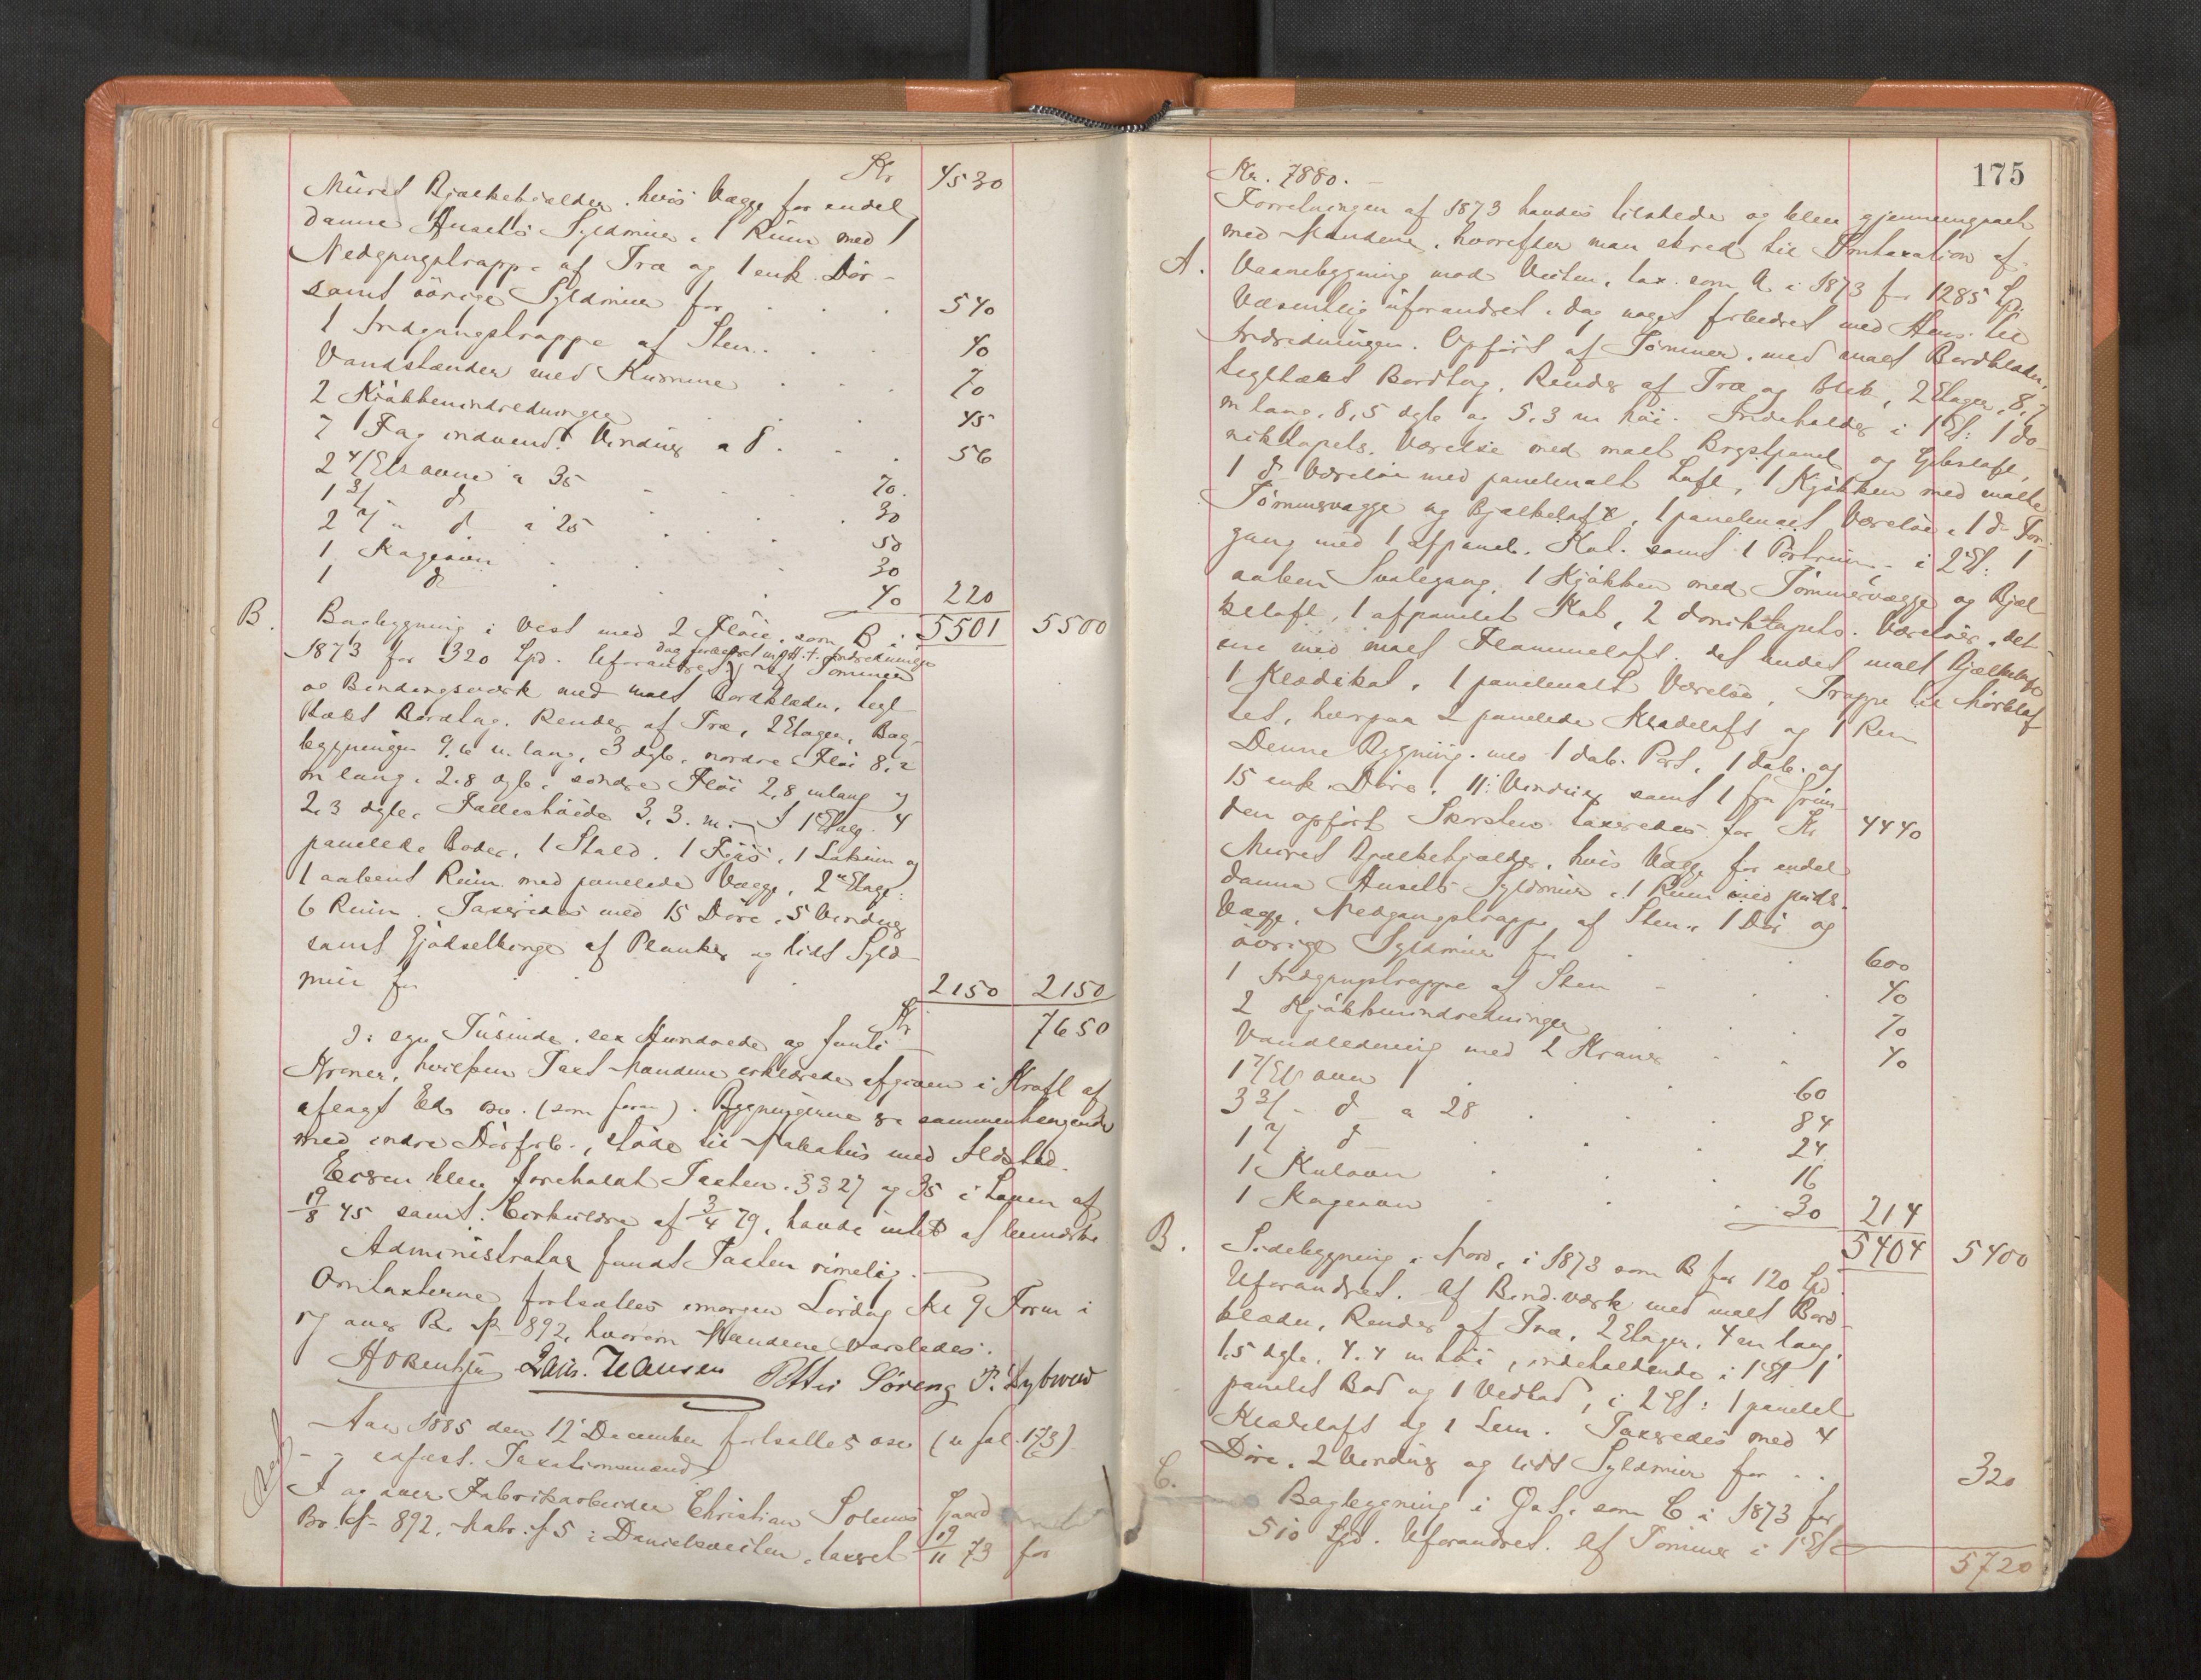 Kr 4530
Muret Bjælkekjelder, hvis Vægge for endel
danne Husets Syldmur, 1 Rum med
Nedgangstrappe af Træ og 1 enk. Dör-
samt övrige Syldmur for . . . 540
1 Indgangstrappe af Sten . . . 40
Vandstænder med Kumme . . . 70
2 Kjökkenindredninger . . . 45
7 Fag indvend. Vinduer a 8 . . . 56
2 4/Els ovne a 35 . . 70.
1 3/- d . . . 30
2 2/" d a 25 . . . 50
1 Kageovn . . . 30
1 d . . . 40 220
5501 5500
B. Bagbygning i Vest med 2 Flöie, som B i
1873 for 320 Spd. Uforandret, dog forbedret m. H. t. Indredningen
af Tömmer
og Bindingsværk med malt Bordklædn, tegl-
tækt Bordtag. Render af Træ, 2 Etager, Bag-
bygningen 9.6 m. lang, 3 dyb, nordre Flöi 8,2
m lang, 2.8 dyb, söndre Flöi 2,8 m lang og
2,3 dyb. Fælleshöide 3,3. m. - I 1 Etag. 4
panelede Boder, 1 Stald, 1 Fjös, 1 Lokum og
1 aabent Rum med panelede Vægge, 2den Etage:
6 Rum. Taxeredes med 15 Döre, 5 Vinduer
samt Gjödselbinge af Planker og lidt Syld-
mur for . . . 2150 2150
Kr 7650
ɔ: syv Tusinde, sex Hundrede og femti
Kroner, hvilken Taxt Mændene erklærede afgiven i Kraft af
aflagt Ed osv. (som foran). Bygningerne er sammenhængende
med indre Dörforb., stöde til Nabohus med Ildsted.
Eieren blev foreholdt Taxten, §§ 27 og 35 i Loven af
19/8 45 samt Cirkulære af 3/4 79, havde intet at bemærke.
Administrator fandt Taxten rimelig.
Omtaxterne fortsattes imorgen Lördag Kl 9 Form i
og over Br. № 892, hvorom Mændene varsledes.
Hans. Hansen Petter Söreng P. Lybwed
Aar 1885 den 12 December fortsattes osv (se fol. 173)
edfæst. Taxationsmænd
i og over Fabrikarbeider Christian Solems Gaard
Br. № 892, Matr. № 5 i Danielsveiten, taxeret 19/11 73 for
175
Kr. 7880. —
Forretningen af 1873 havdes tilstede og blev gjennemgaaet
med Mændene, hvorefter man skred til Omtaxation af
A. Vaanebygning mod Veiten, tax. som A i 1873 for 1285 Spd.
Væsentlig uforandret, dog noget forbedret med Hens. til
Indredningen. Opfört af Tömmer, med malt Bordklædn,
tegltækt Bordtag, Render af Træ og Blik, 2 Etager, 8,7
m lang, 8,5 dyb og 5.3 m höi. Indeholder i 1 Et: 1 do-
niktapets. Værelse med malt Brystpanel og Gibsloft,
1 d Værelse med panelmalt Loft, 1 Kjökken med malte
Tömmervægge og Bjælkeloft, 1 panelmalt Værelse, 1 d For-
gang med 1 afpanel. Kot. samt 1 Portrum - i 2 Et: 1
aaben Svalegang, 1 Kjökken med Tömmervægge og Bjæl-
keloft, 1 afpanelet Kot, 2 doniktapets. Værelser, det
ene med malt Flammeloft, det andet malt Bjælkeloft
1 Klædekot, 1 panelmalt Værelse, Trappe til Mörkloft
tet, hvorpaa 2 panelede Klædeloft og 1 Rum
Denne Bygning med 1 dob. Port, 1 dob. og
15 enk. Döre, 11 Vinduer samt 1 fra Grun-
den opfört Skorsten taxeredes for Kr 4440
Muret Bjælkekjelder, hvis Vægge for endel
danne Husets Syldmur, 1 Rum med puds.
Vægge, Nedgangstrappe af Sten, 1 Dör og
övrige Syldmur for . . . 600
1 Indgangstrappe af Sten - . . 40
2 Kjökkenindredninger . . . 70
Vandledning med 2 Kraner . . 40
1 4/Els ovn . . . 60
3 3/- d a 28 . . . 84
1 2/ d . . . 24
1 Kulovn . . . 16
1 Kageovn . . . 30 214
5404 5400
B. Sidebygning i Nord, i 1873 som B for 120 Spd.
Uforandret. Af Bind.værk med malt Bord-
klædn, Render af Træ, 2 Etager, 4 m lang,
1.5 dyb, 4.4 m höi, indeholdende i 1 Et 1
panelet Bod og 1 Vedbod, i 2 Et: 1 panelet
Klædeloft og 1 Lem. Taxeredes med 4
Döre, 2 Vinduer og lidt Syldmur for . . 320
C. Bagbygning i Öst, som C i 1873 for
510 Spd. Uforandret. Af Tömmer i 1 Et
5720